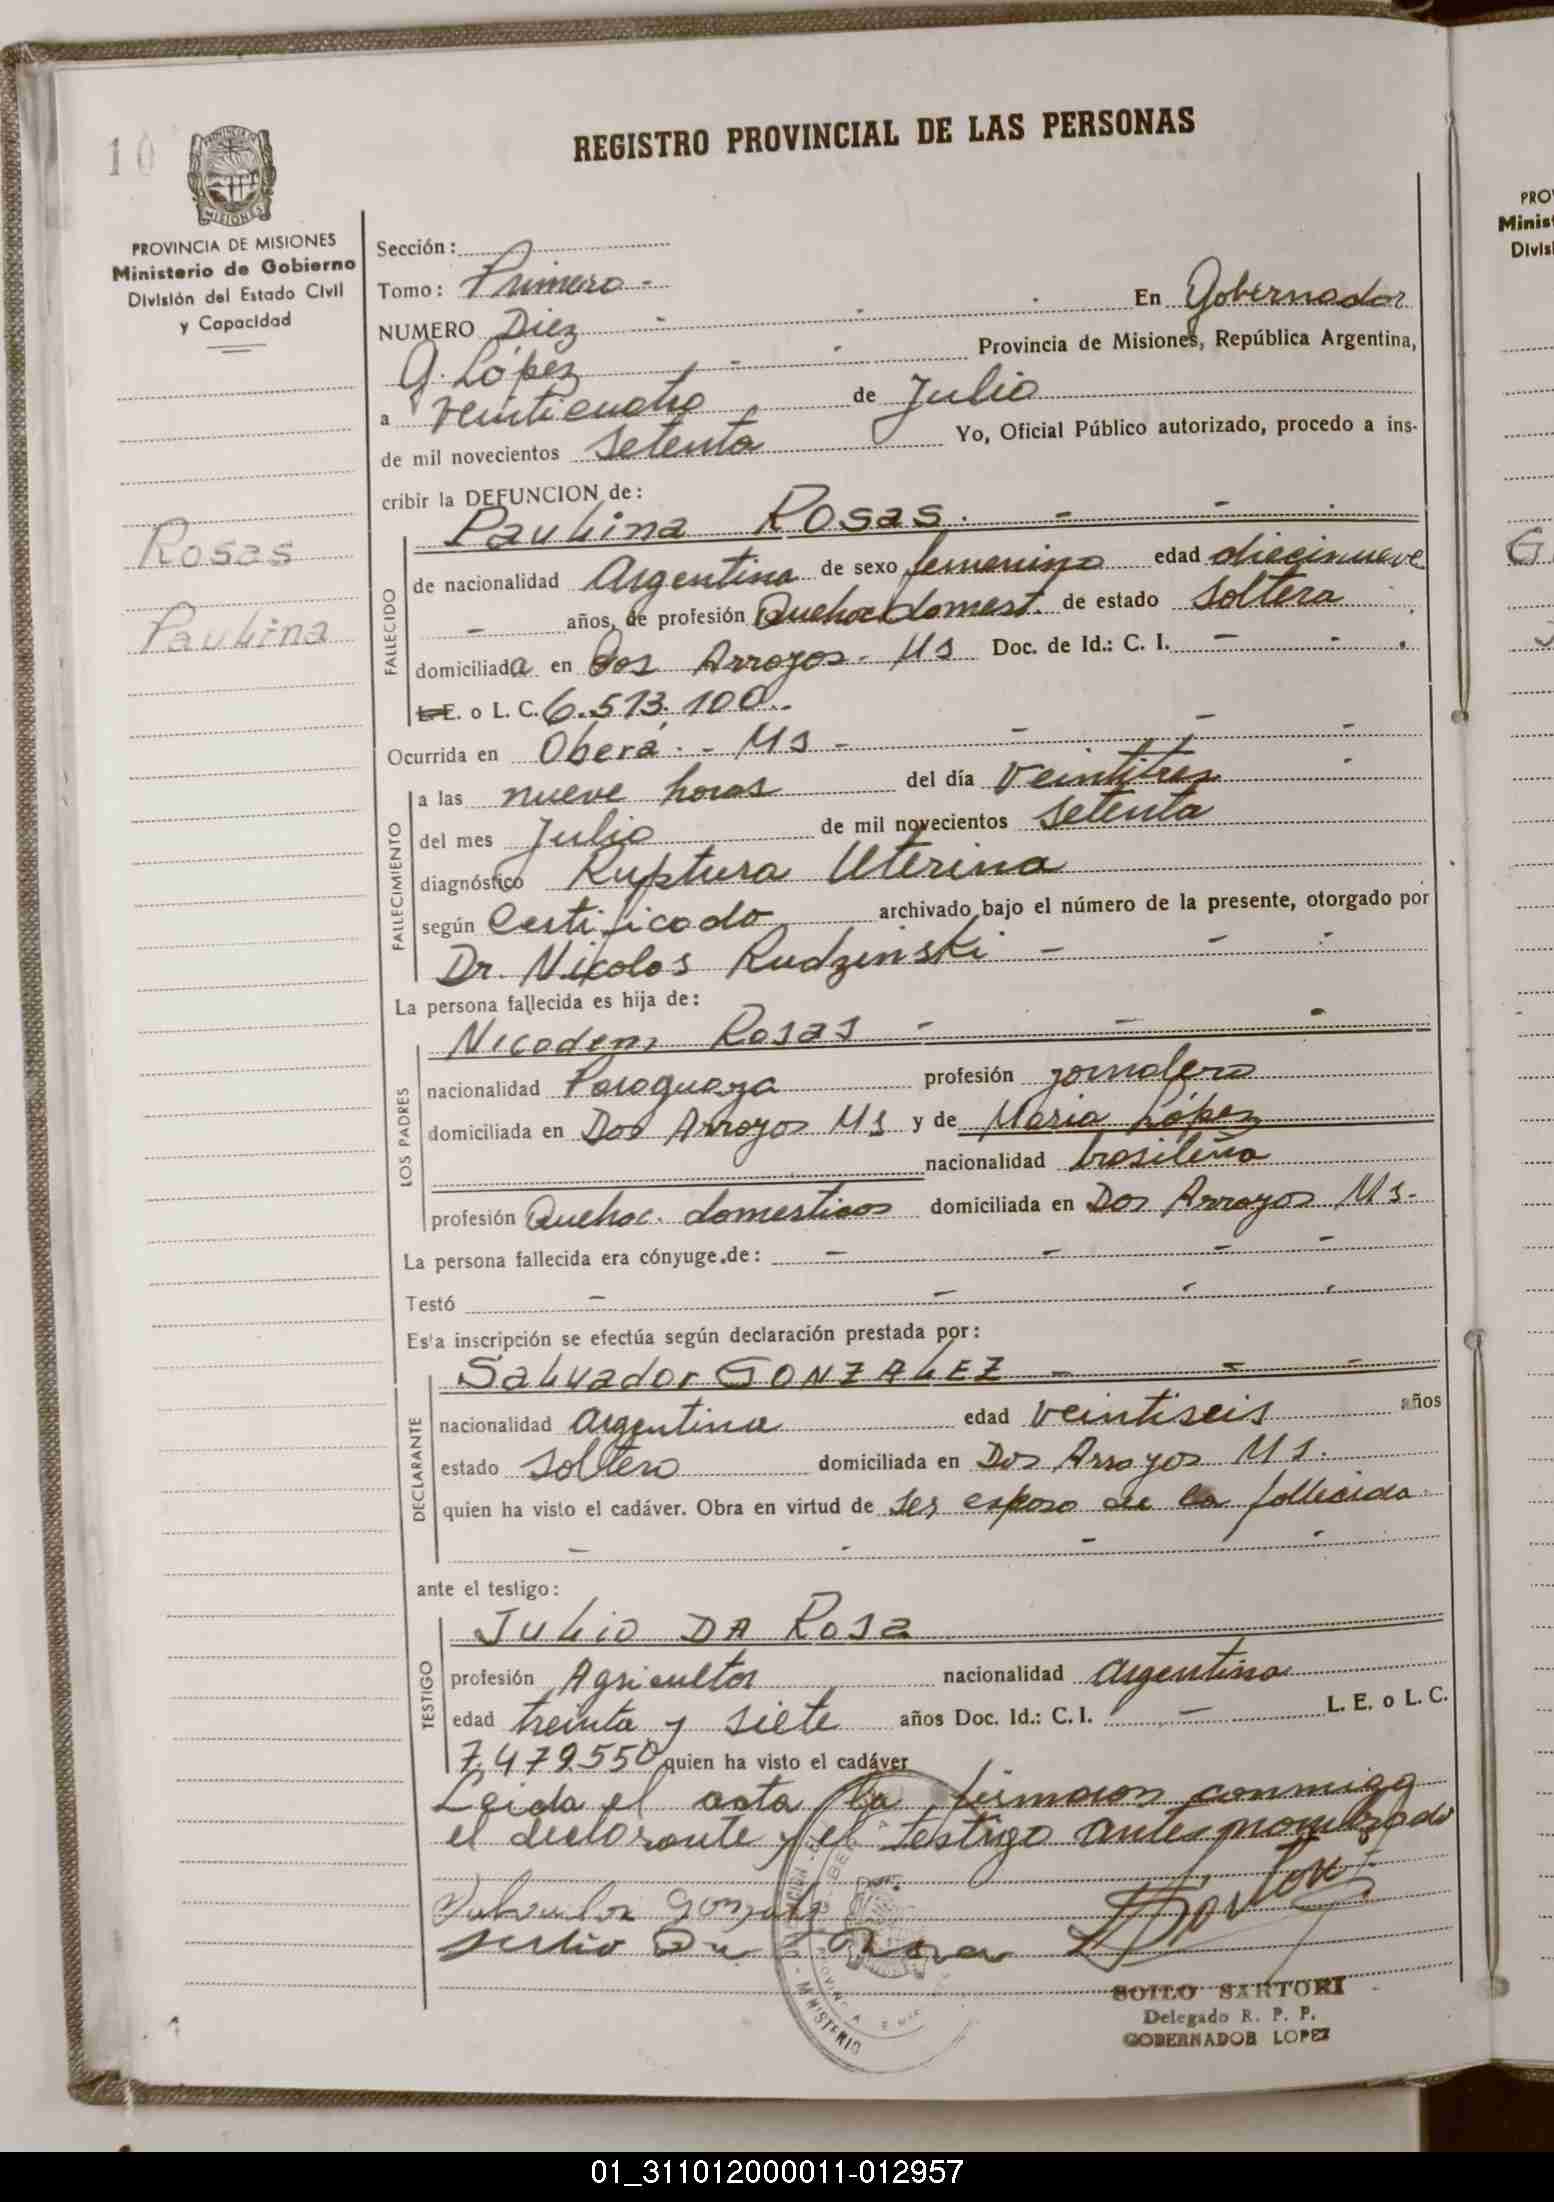 10
REGISTRO PROVINCIAL DE LAS PERSONAS
PROVINCIA DE MISIONES
Ministerio de Gobierno
División del Estado Civil
y Capacidad
Rosas
Paulina
Sección:
Tomo: Primero -
NUMERO Diez - - - En Gobernador
G. López - - Provincia de Misiones, República Argentina,
a veinticuatro de Julio
de mil novecientos setenta Yo, Oficial Público autorizado, procedo a ins-
cribir la DEFUNCION de:
Paulina Rosas. - - -
FALLECIDO
de nacionalidad Argentina de sexo femenino edad diecinueve
- años, de profesión Quehac. domest. de estado soltera
domiciliada en Dos Arroyos - Ms Doc. de Id.: C. I. - - -
L. E. o L. C. 6.513.100.-
Ocurrida en Oberá. - Ms - - - -
FALLECIMIENTO
a las nueve horas del día veintitres -
del mes Julio de mil novecientos setenta
diagnóstico Ruptura Uterina
según Certificado archivado bajo el número de la presente, otorgado por
Dr. Nicolas Rudzinski - - -
La persona fallecida es hija de:
Rosas - - -
LOS PADRES
nacionalidad Paraguaya profesión jornalero
domiciliada en Dos Arroyos Ms y de Maria López
nacionalidad brasileña
profesión Quehac. domesticos domiciliada en Dos Arroyos Ms-
La persona fallecida era cónyuge de: - - - -
Testó - - - -
Esta inscripción se efectúa según declaración prestada por:
Salvador GONZALEZ - - -
DECLARANTE
nacionalidad argentina edad veintiseis años
estado soltero domiciliada en Dos Arroyos Ms.
quien ha visto el cadáver. Obra en virtud de ser esposo de la fallecida
- - - -
ante el testigo:
Julio DA Rosa
TESTIGO
profesión Agricultor nacionalidad argentina
edad treinta y siete años Doc. Id.: C. I. - L. E. o L. C.
7.479.550 quien ha visto el cadáver
Leida el acta la firmaron conmigo
el declarante y el testigo antes nombrado
Salvador Gonzalez
Julio Da Rosa
MINISTERIO
SOITO SARTORI
Delegado R. P. P.
GOBERNADOR LOPEZ
PRO
Minist
Divis
01_311012000011-012957